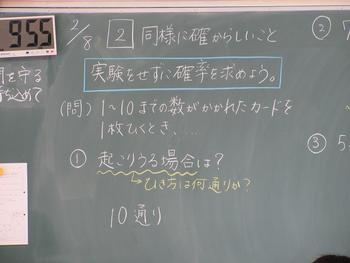 955
2/8 2 同様に確からしいこと
実験をせずに確率を求めよう。
(問) 1〜10までの数がかかれたカードを
1枚ひくとき、....
① 起こりうる場合は?
→ひき方は何通りか?
10通り
②
③ 5
を守る